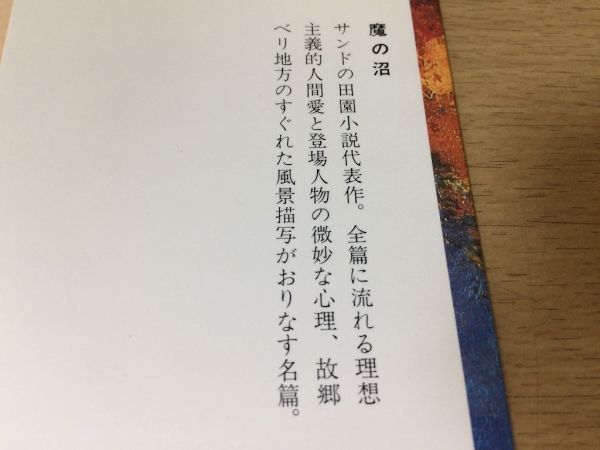 魔の沼
サンドの田園小説代表作。全篇に流れる理想
主義的人間愛と登場人物の微妙な心理、故郷
ベリ地方のすぐれた風景描写がおりなす名篇。